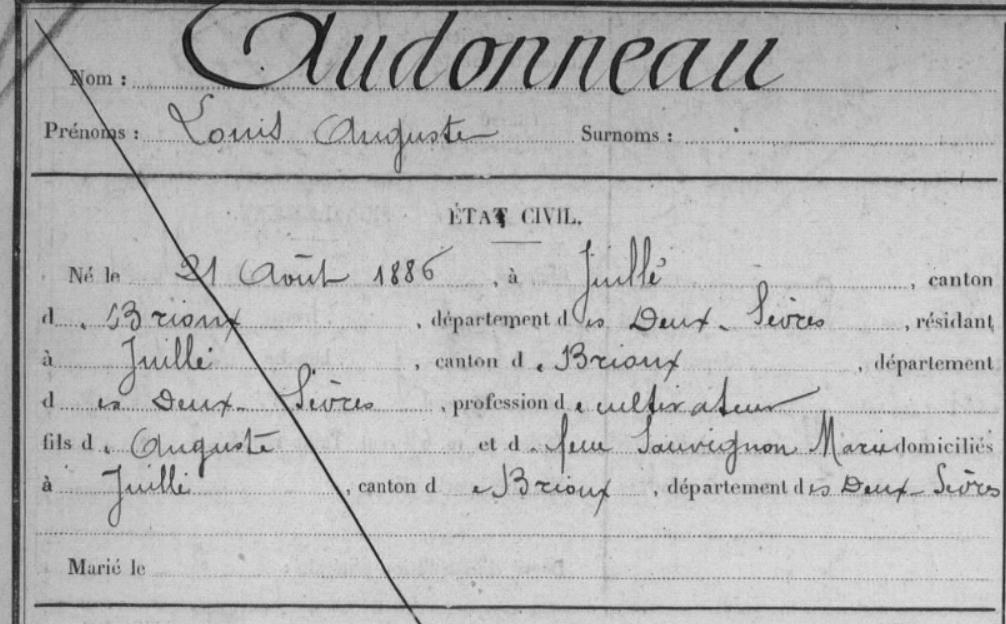 Nom : Audonneau
Prénoms : Louis Auguste Surnoms :
ÉTAT CIVIL.
Né le 21 Août 1886, à Juillé, canton
de Brioux, département des Deux-Sèvres, résidant
à Juillé, canton de Brioux, département
des Deux-Sèvres, profession de cultivateur
fils d. Auguste et de feue Sauvignon Marie domiciliés
à Juillé, canton de Brioux, département des Deux-Sèvres
Marié le